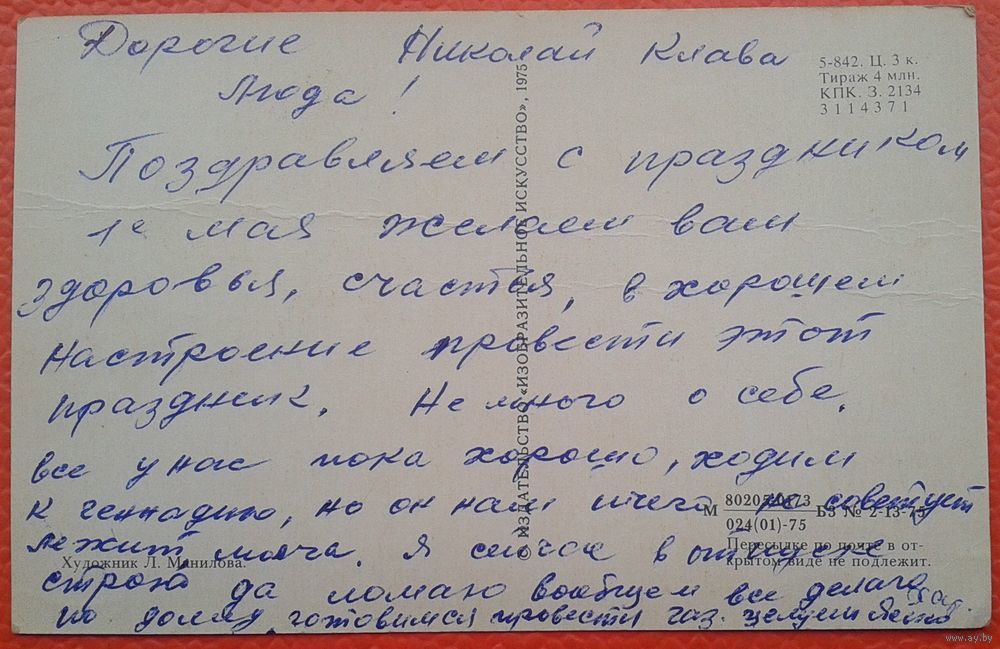 Дорогие Николай Клава
Люда!
5-842. Ц. 3 к.
Тираж 4 млн.
КПК. З. 2134
3114371
Поздравляем с праздником
1е мая желаем вам
здоровья, счастья, в хорошем
настроение провести этот
праздник. Не много о себе.
все у нас пока хорошо, ходим
к геннадию, но он нам ничего не советует
лежит молча. Я сейчас в отпуске
строю да ломаю вообщем все делаю
по дому, готовимся провести газ. целуем
© ИЗДАТЕЛЬСТВО «ИЗОБРАЗИТЕЛЬНОЕ ИСКУССТВО», 1975
М 024(01)-75 БЗ № 2-13-75
Пересылке по почте в от-
крытом виде не подлежит.
Художник Л. Манилова.
www.ay.by